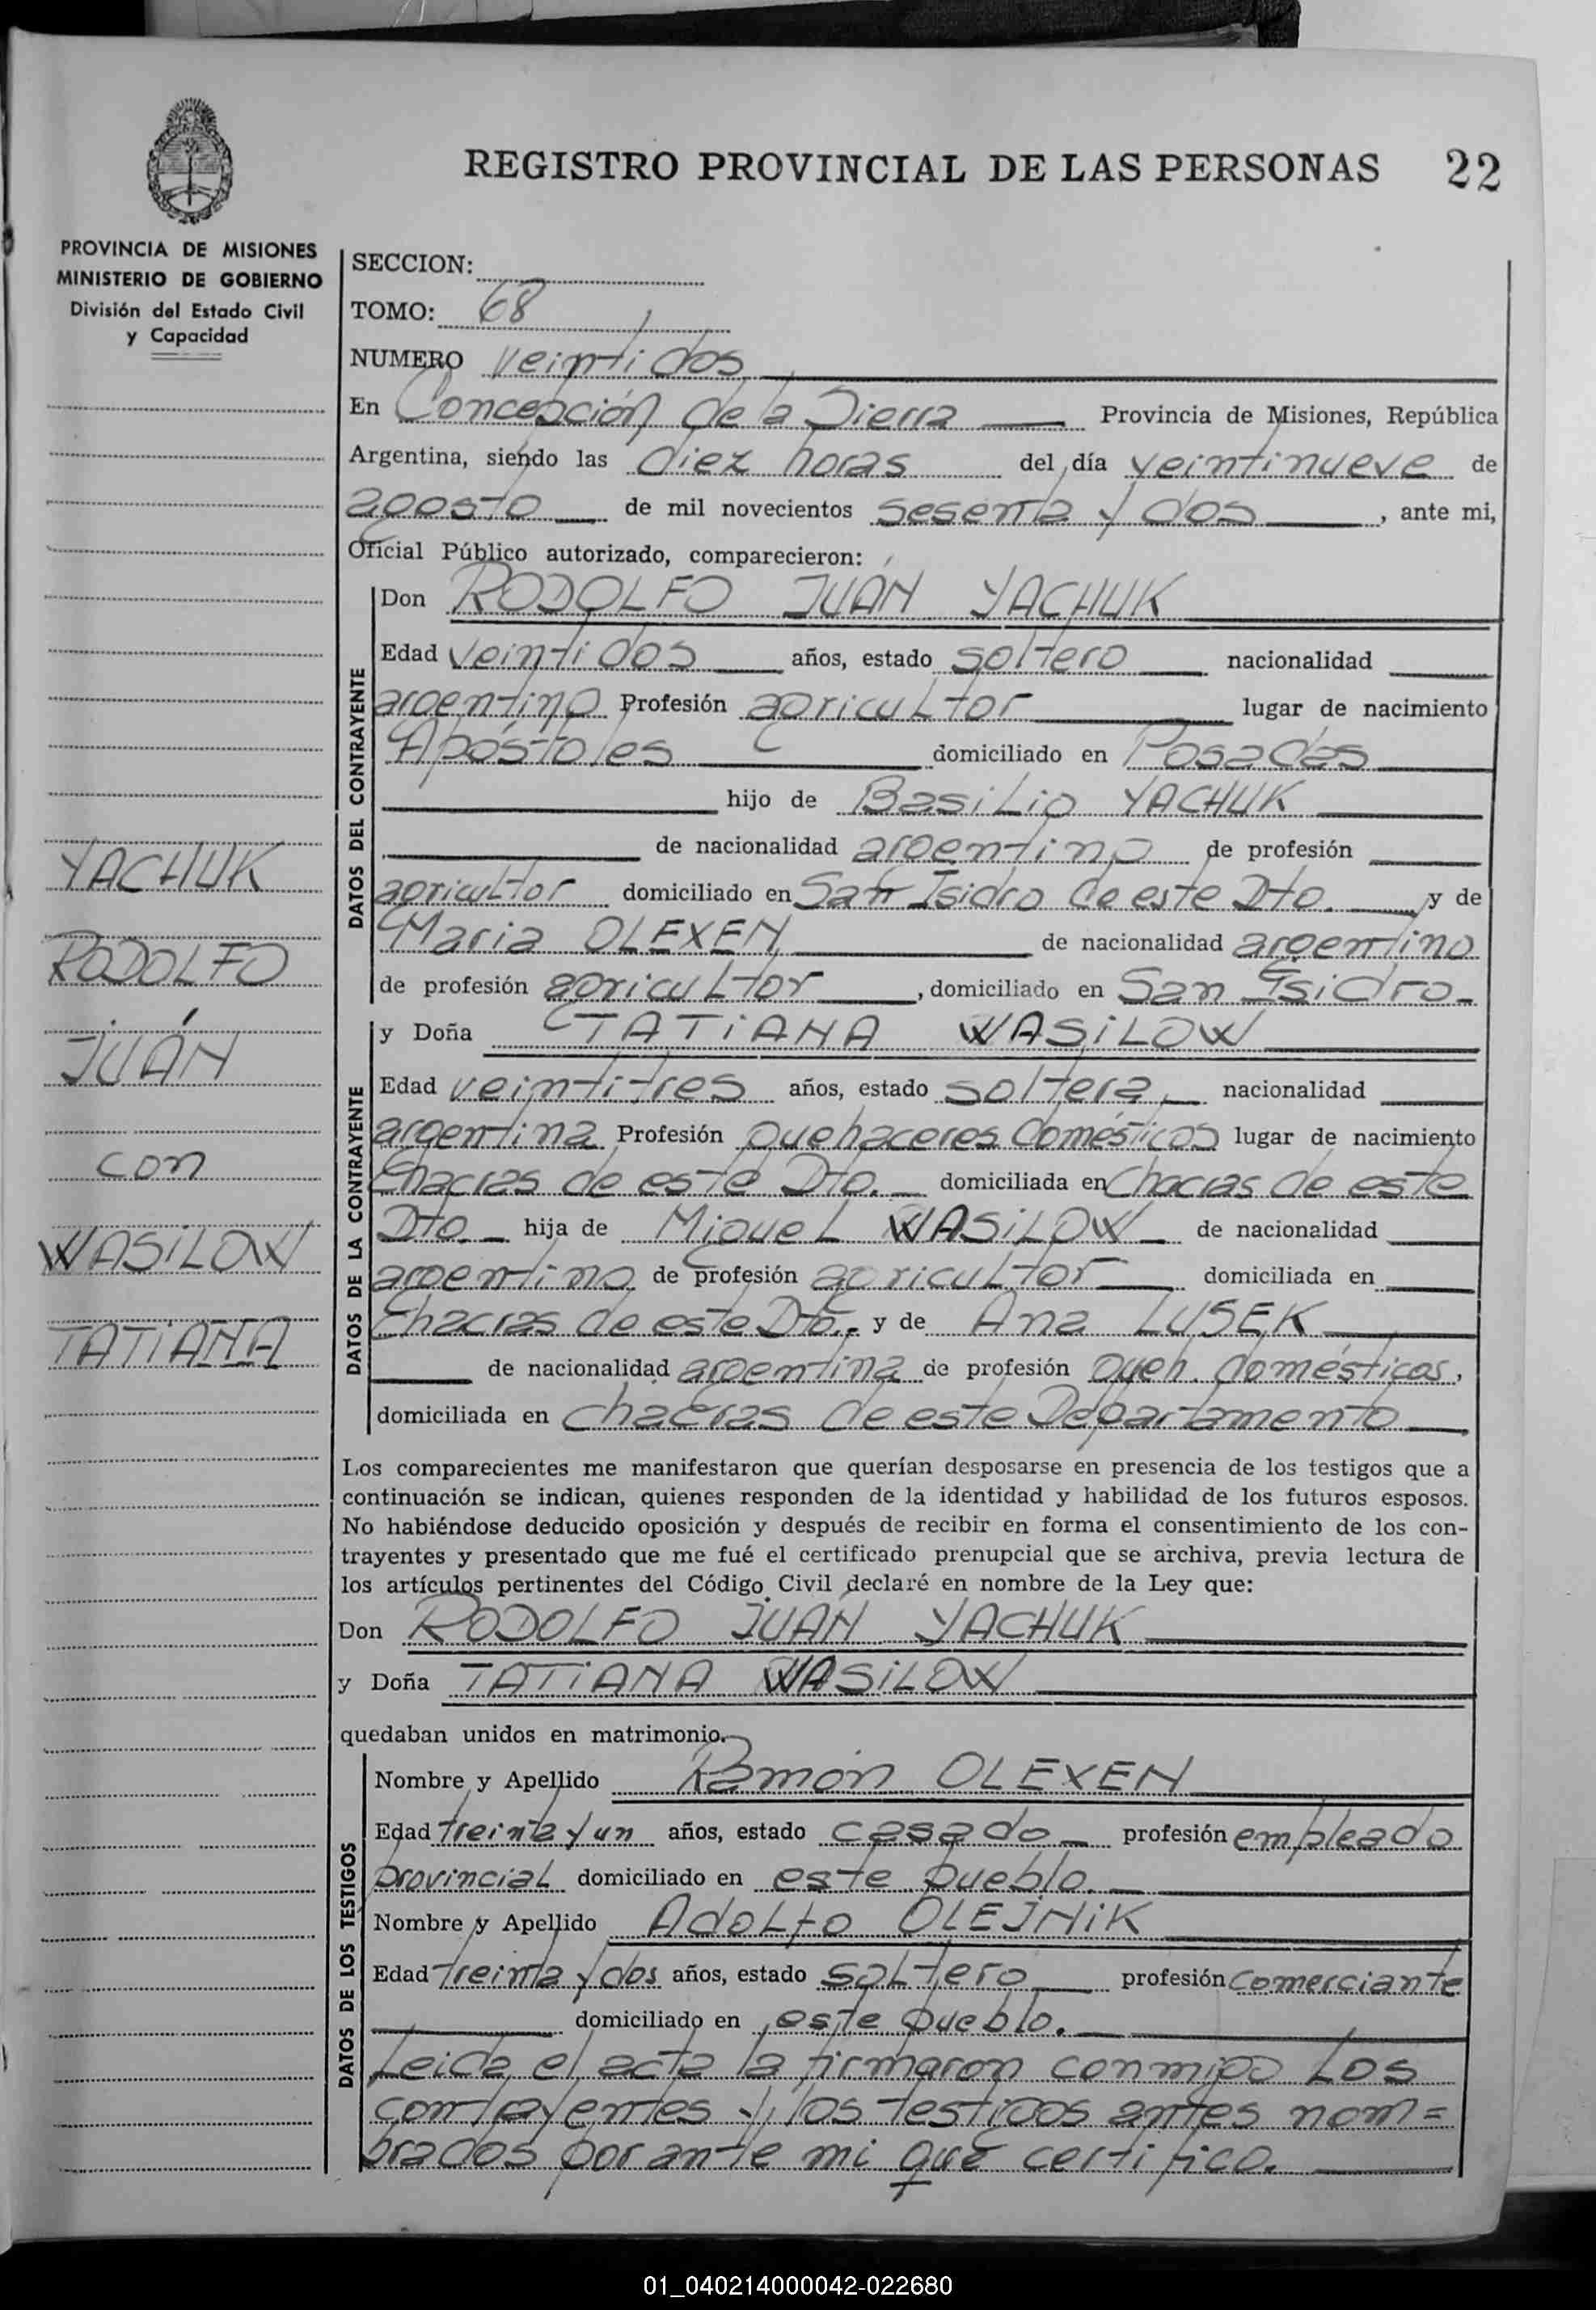 REGISTRO PROVINCIAL DE LAS PERSONAS 22
PROVINCIA DE MISIONES
MINISTERIO DE GOBIERNO
División del Estado Civil
y Capacidad
YACHUK
RODOLFO
JUÁN
con
WASiLOW
TATiANA
SECCION:
TOMO: 68
NUMERO Veinti dos
En Concepción de la Sierra Provincia de Misiones, República
Argentina, siendo las diez horas del día veintinueve de
agosto de mil novecientos sesenta y dos, ante mi,
Oficial Público autorizado, comparecieron:
DATOS DEL CONTRAYENTE
Don RODOLFO JUÁN YACHUK
Edad veinti dos años, estado soltero nacionalidad
argentino Profesión agricultor lugar de nacimiento
Apóstoles domiciliado en Posadas
hijo de Basilio YACHUK
de nacionalidad argentino de profesión
agricultor domiciliado en San Isidro de este Dto. y de
Maria OLEXEN de nacionalidad argentino
de profesión agricultor, domiciliado en San Isidro.
DATOS DE LA CONTRAYENTE
y Doña TATiANA WASiLOW
Edad veintitres años, estado soltera, nacionalidad
argentina Profesión quehaceres domésticos lugar de nacimiento
Chacras de este Dto. domiciliada en Chacras de este
Dto. hija de Miguel WASiLOW de nacionalidad
argentino de profesión agricultor domiciliada en
Chacras de este Dto. y de Ana LUSEK
de nacionalidad argentina de profesión queh. domésticos,
domiciliada en chacras de este Departamento
Los comparecientes me manifestaron que querían desposarse en presencia de los testigos que a
continuación se indican, quienes responden de la identidad y habilidad de los futuros esposos.
No habiéndose deducido oposición y después de recibir en forma el consentimiento de los con-
trayentes y presentado que me fué el certificado prenupcial que se archiva, previa lectura de
los artículos pertinentes del Código Civil declaré en nombre de la Ley que:
Don RODOLFO JUÁN YACHUK
y Doña TATiANA WASiLOW
quedaban unidos en matrimonio.
DATOS DE LOS TESTIGOS
Nombre y Apellido Ramón OLEXEN
Edad treinta y un años, estado casado profesión empleado
provincial domiciliado en este pueblo.
Nombre y Apellido Adolfo OLEJNiK
Edad treinta y dos años, estado soltero profesión comerciante
domiciliado en este pueblo.
Leida el acta la firmaron conmigo los
contayentes y los testigos antes nom=
brados por ante mi que certifico.
01_040214000042-022680